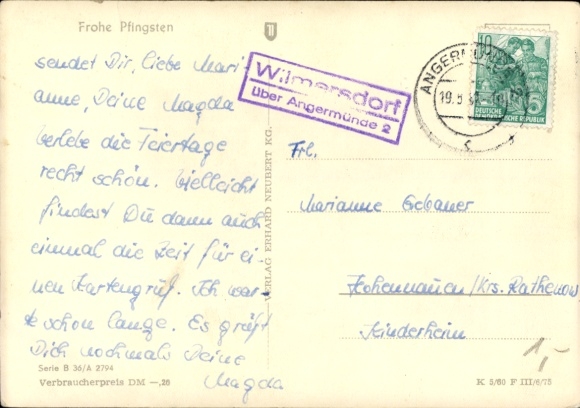 Frohe Pfingsten
sendet Dir, liebe Mari-
anne, Deine Magda
verlebe die Feiertage
recht schön. Vielleicht
findest Du dann auch
einmal die Zeit für ei-
nen Kartengruß. Ich war-
te schon lange. Es grüßt
Dich nochmals Deine
Magda
Serie B 36/A 2794
Verbraucherpreis DM —,26
VERLAG ERHARD NEUBERT KG.
Wilmersdorf
über Angermünde 2
ANGERMÜNDE
19.5
10
5
DEUTSCHE
DEMOKRATISCHE REPUBLIK
Frl.
Marianne
Hohennauen/Krs. Rathenow
Kinderheim
1,-
K 5/60 F III/6/75